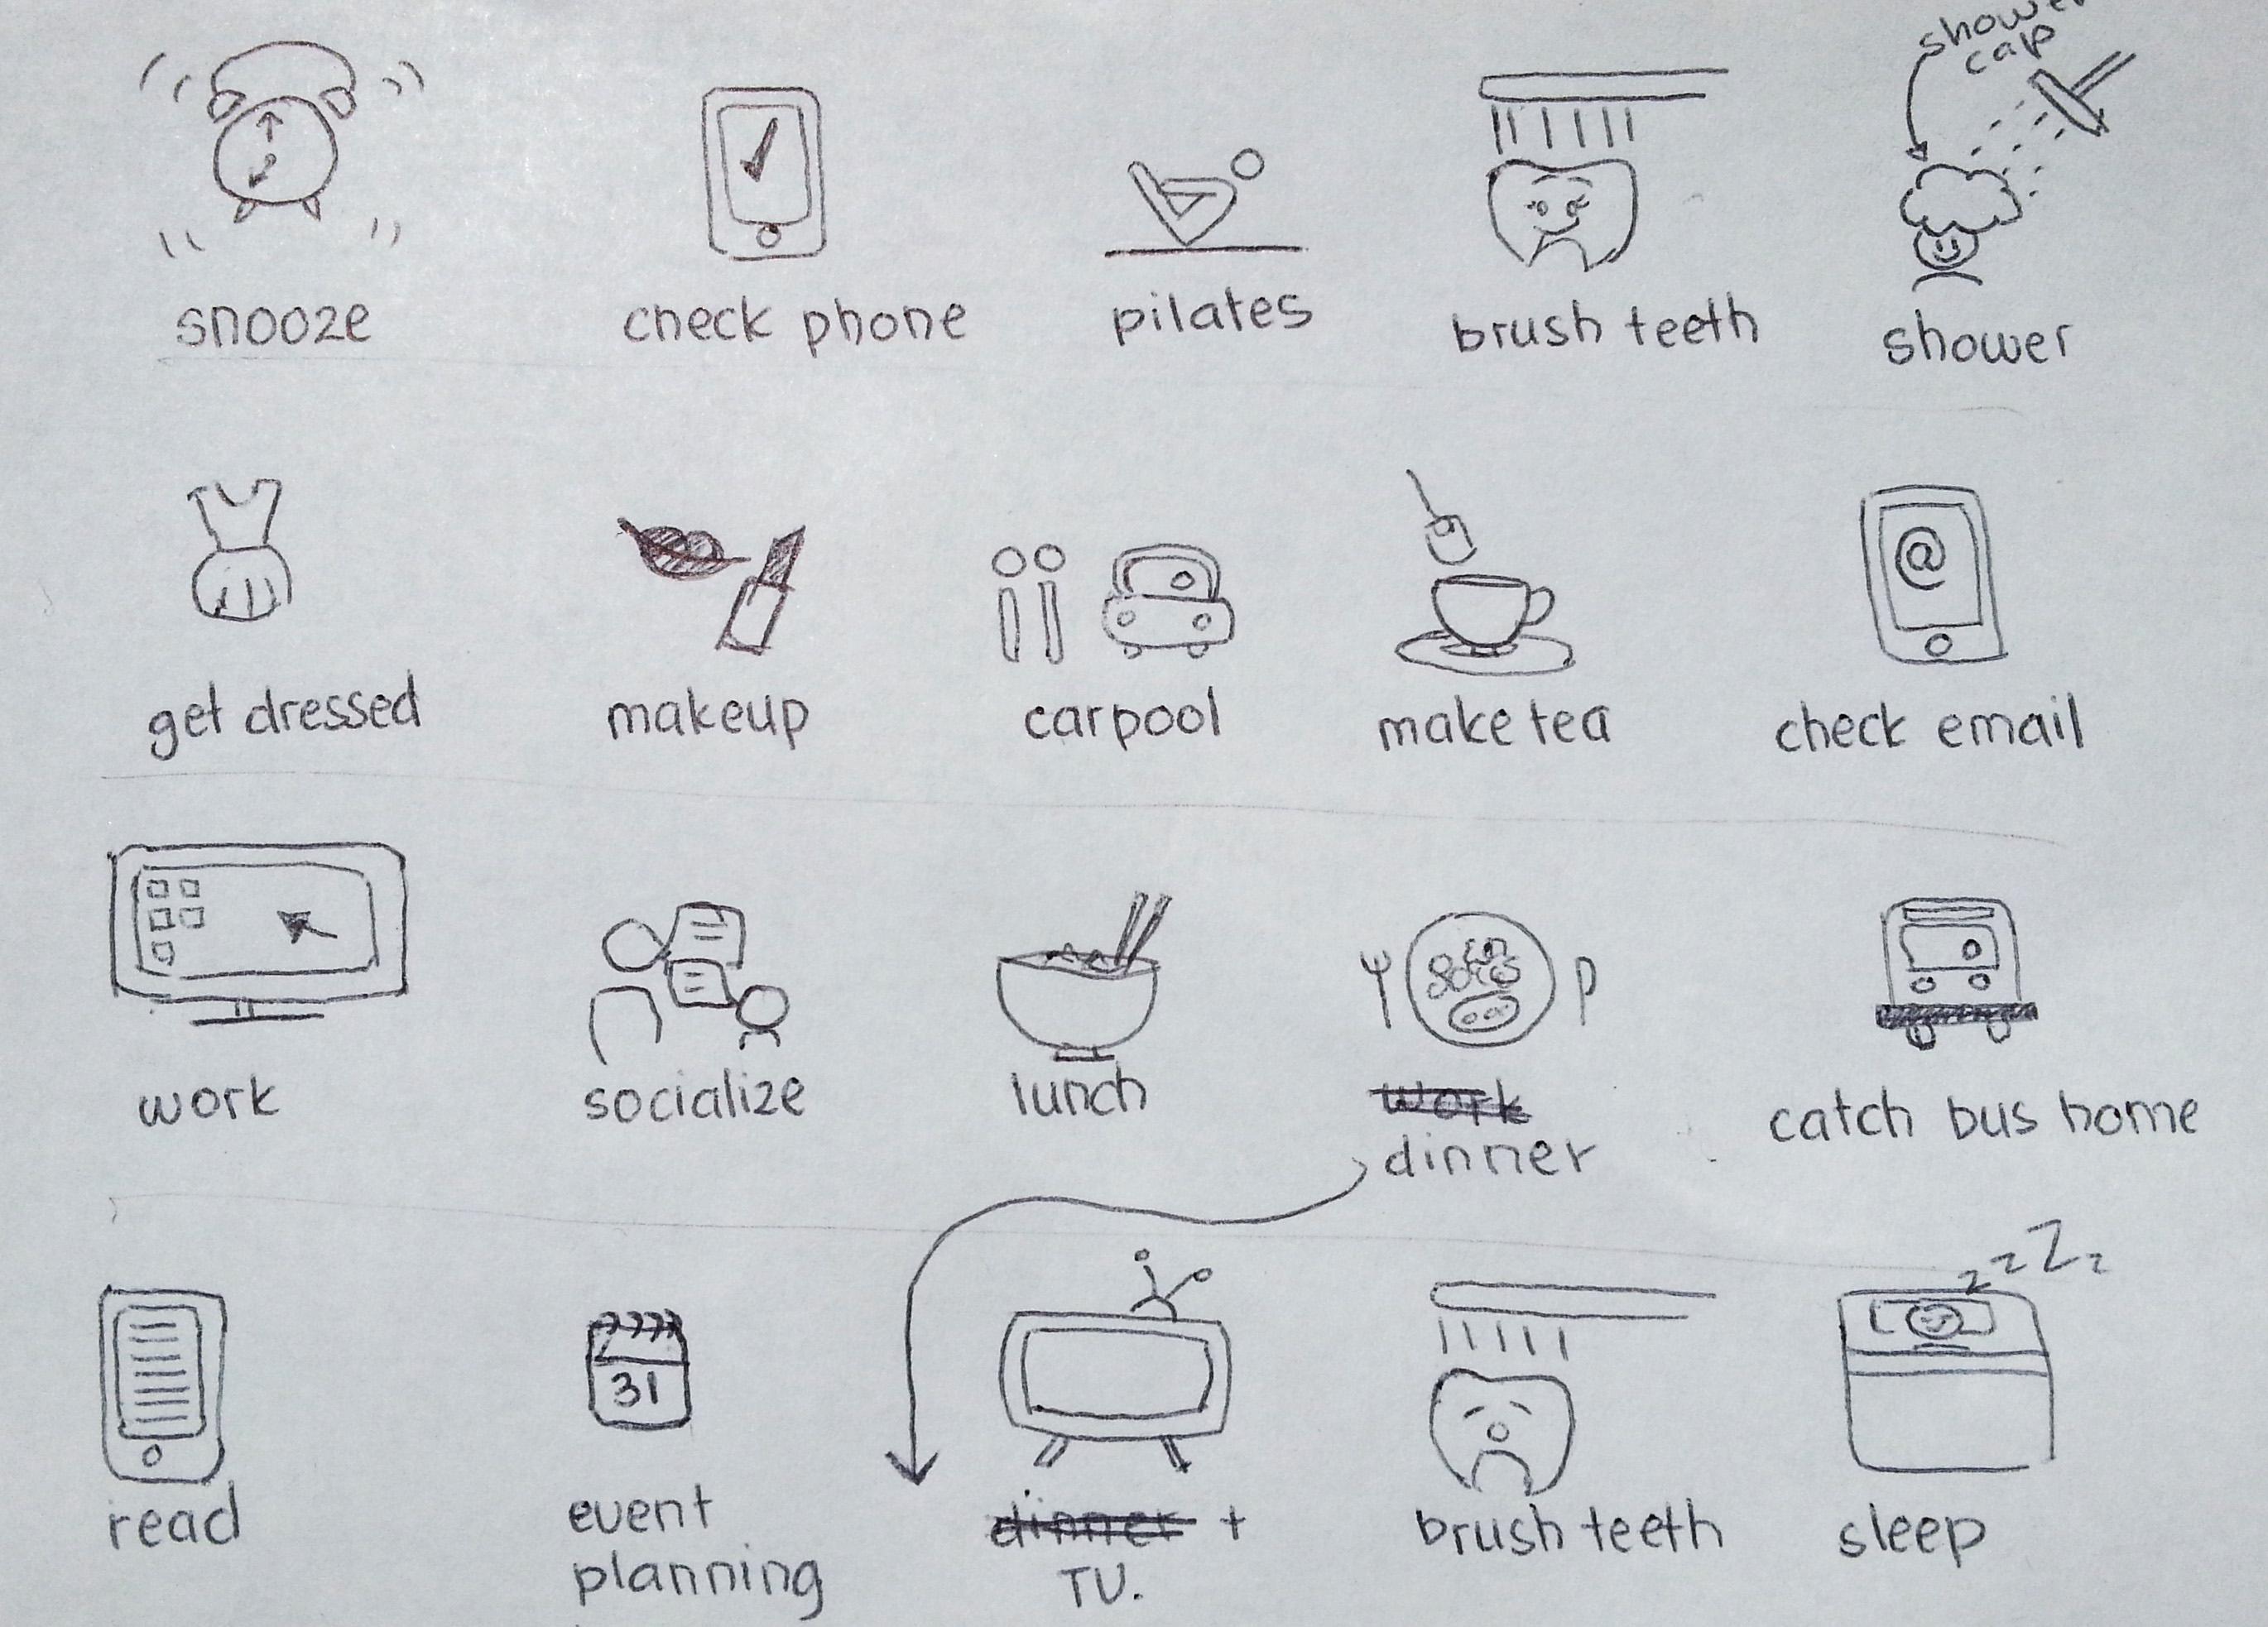 shower
cap
snooze
check phone
pilates
brush teeth
shower
get dressed
makeup
carpool
make tea
@
check email
work
socialize
lunch
work
dinner
catch bus home
zzZz
read
31
event
planning
dinner +
TV.
brush teeth
sleep